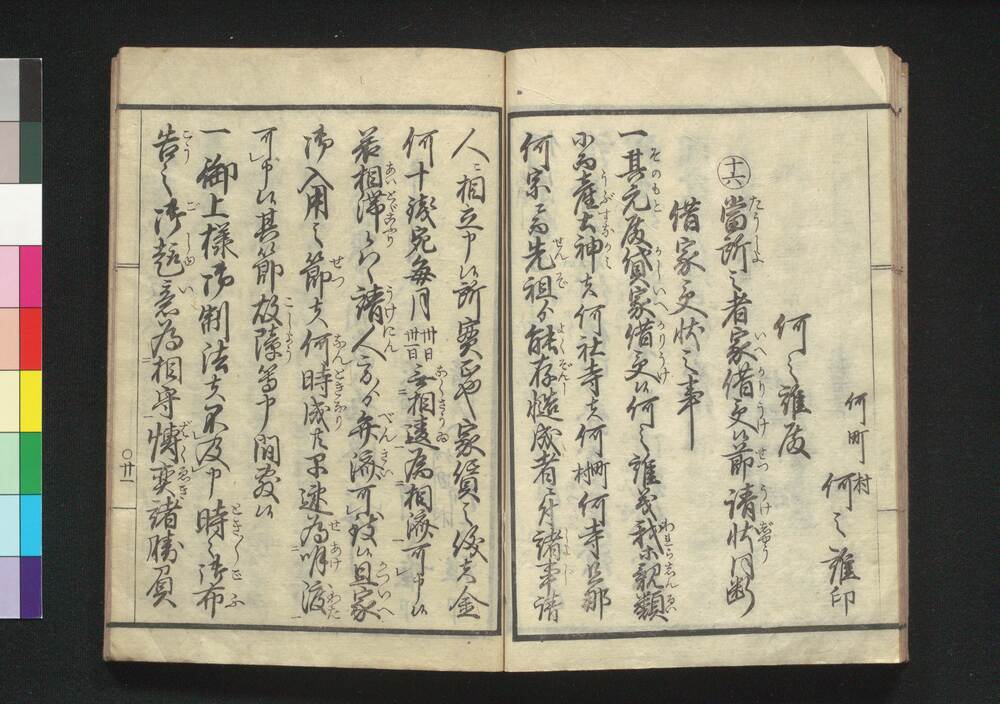 何町村 何之誰印
何之誰殿
十六 當所之者家借受候節請状同断
借家受状之事
一其元殿貸家借受候何之誰義我等親類
ニ而産土神者何社寺者何町村何寺旦那
何宗ニ而先祖ゟ能存慥成者ニ付諸事請
人ニ相立申候所実正也家賃之儀者金
何十銭宛毎月卅日卅一日無相違為相済可申候
若相滞候ハヽ請人方ゟ弁済可致候且家
御入用之節者何時成共早速為明渡
可申候其節故障筆申間敷候
一御上様御制法者不及申時々御布
告之御趣意為相守博奕諸勝負
〇廿一